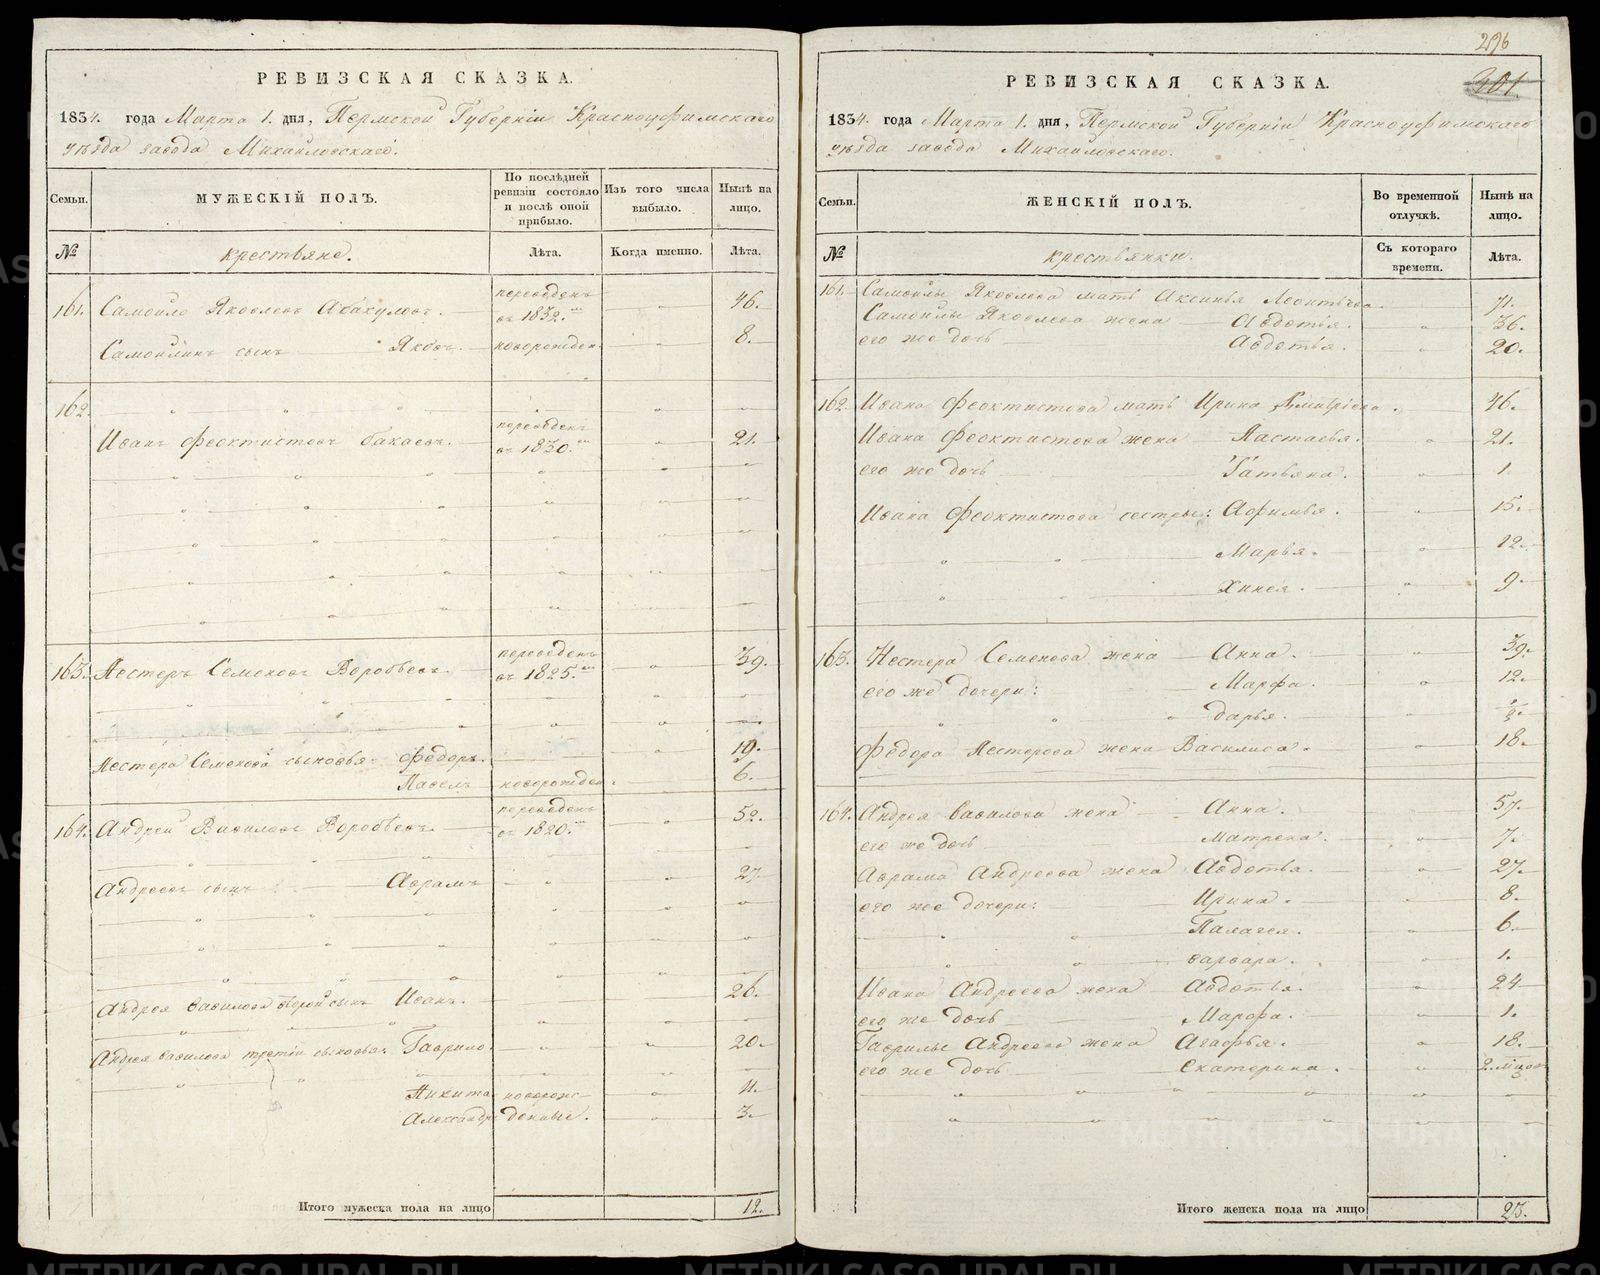 РЕВИЗСКАЯ СКАЗКА.
1834. года Марта 1. дня, Пермской Губерніи Красноуфимскаго
уѣзда завода Михайловскаго.
Семьи.
МУЖЕСКІЙ ПОЛЪ.
По послѣдней ревизіи состояло и послѣ оной прибыло.
Изъ того числа выбыло.
Нынѣ на лицо.
№
крестьяне.
Лѣта.
Когда именно.
Лѣта.
161. Самоило Яковлевъ Абакумовъ. переведенъ въ 1832. 46.
Самоилинъ сынъ Яковъ. новорожден. 8.
162.
Иванъ Феоктистовъ Бакаевъ. переведен въ 1830. 21.
163. Нестеръ Семеновъ Воробьевъ. переведенъ въ 1825. 39.
Нестера Семенова сыновья Федоръ. 19.
Павелъ новорожден. 6.
164. Андрей Вавиловъ Воробьевъ. переведенъ въ 1820. 52.
Андреевъ сынъ Аврамъ 27.
Андрея Вавилова второй сынъ Иванъ. 26.
Андрея Вавилова третіи сыновья: Гаврило. 20.
Никита новорож- 11.
Александръ денные. 3.
Итого мужеска пола на лицо 12.
296
301.
РЕВИЗСКАЯ СКАЗКА.
1834. года Марта 1. дня, Пермской Губерніи Красноуфимскаго
уѣзда завода Михайловскаго.
Семьи.
ЖЕНСКІЙ ПОЛЪ.
Во временной отлучкѣ.
Нынѣ на лицо.
№
крестьянки.
Съ котораго времени.
Лѣта.
161. Самоилы Яковлева мать Аксинья Леонтьева. 71.
Самоилы Яковлева жена Авдотья. 36.
его же дочь Авдотья. 20.
162. Ивана Феоктистова мать Ирина Дмитріева. 46.
Ивана Феоктистова жена Настасья. 21.
его же дочь Татьяна. 1.
Ивана Феоктистова сестры: Афимья. 15.
Марья. 12.
Хинея. 9.
163. Нестера Семенова жена Анна. 39.
его же дочери: Марфа. 12.
Дарья.
Федора Нестерова жена Василиса. 18.
164. Андрея Вавилова жена Анна. 57.
его же дочь Матрена. 7.
Аврама Андреева жена Авдотья. 27.
его же дочери: Ирина. 8.
Палагея. 6.
Варвара. 1.
Ивана Андреева жена Авдотья. 24
его же дочь Марфа. 1.
Гаврилы Андреева жена Агафья. 18.
его же дочь Екатерина.
Итого женска пола на лицо 23.
METRIKI.GASO-URAL.RU